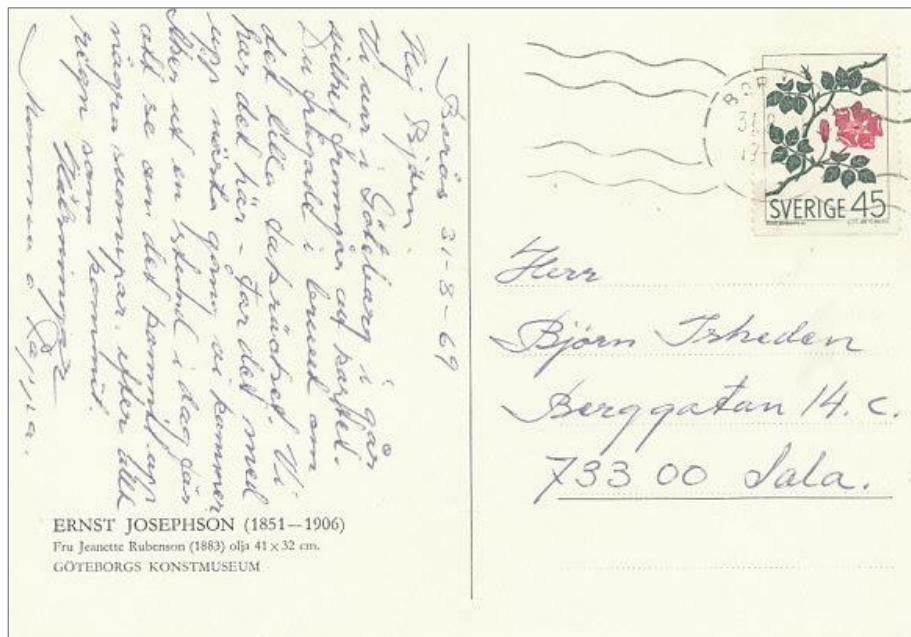 Borås 31-8-69
Hej Björn!
Vi var i Göteborg i går
vilket framgår av kortet.
Du frågade i brevet om
det lilla dasskrinet. Vi
har det här - tar det med
upp nästa gång vi kommer
åker ut en stund i dag för
att se om det kommit upp
några svampar efter allt
regn som kommit.
Hälsningar
Mamma o Pappa.
ERNST JOSEPHSON (1851—1906)
Fru Jeanette Rubenson (1883) olja 41 × 32 cm.
GÖTEBORGS KONSTMUSEUM
BORÅS
SVERIGE 45
Herr
Björn Isheden
Berggatan 14. C.
733 00 Sala.